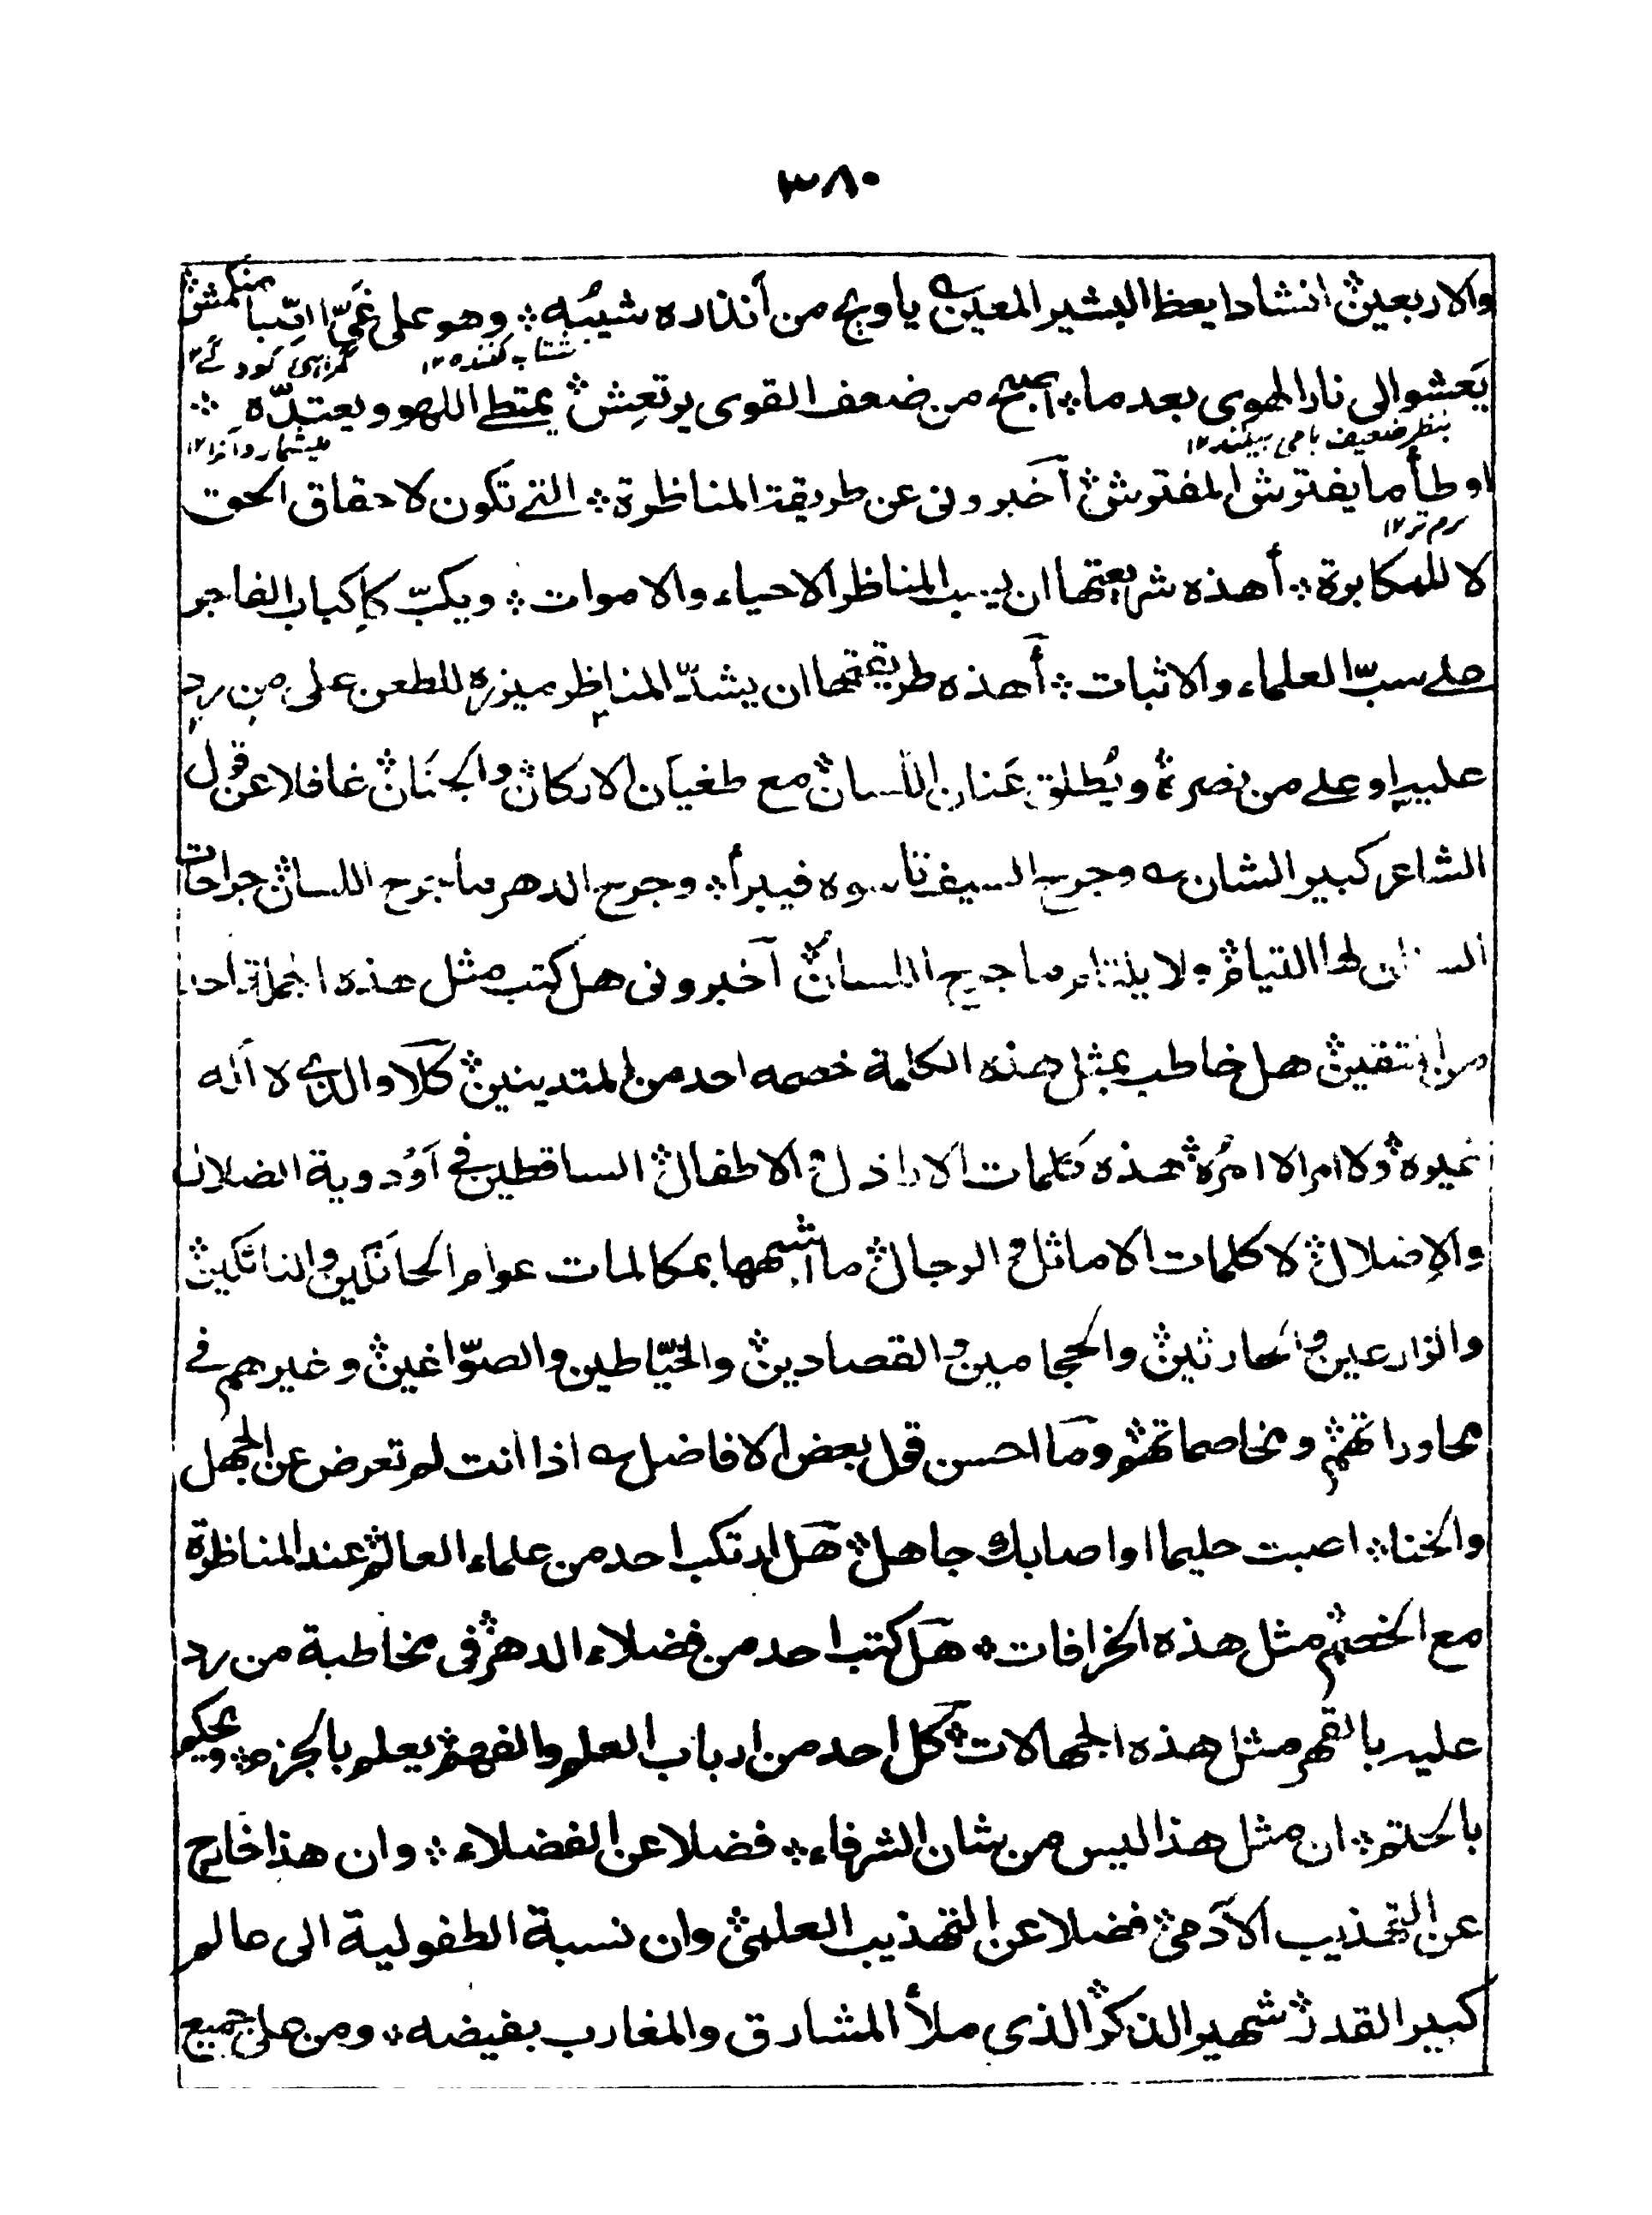 ٣٨٠
والاربعين انشادا يعظ البشير المعين يا ويح من أنذاره شيبه وهو على غيّ الصبا منكمش
شتاب کننده ١٢ گمراہی کودکے ١٢
يعشو الى نار الهوى بعد ما أصبح من ضعف القوى يرتعش يمتطے اللهو ويعتدّه
بنظر ضعيف ١٢ میشمارد آنرا ١٢
اوطأ ما يفترش المفترش آخبرونى عن طريقة المناظرة التے تكون لاحقاق الحق
نرم تر ١٢
لا للمكابرة أهذه شريعتها ان يسب المناظر الاحياء والاموات ويكبّ كإكباب الفاجر
علے سبّ العلماء والاثبات أهذه طريقتها ان يشدّ المناظر ميزره للطعن على من رد
عليه او علے من نصره ويُطلق عنان اللسان مع طغيان الاركان والجنان غافلا عن قول
الشاعر كبير الشان وجرح السيف تأسوه فيبرأ وجرح الدهر ما جرح اللسان جراحات
السنان لها التيام ولا يلتام ما جرح اللسان آخبرونى هل كتب مثل هذه الجملة احد
من المتقين هل خاطب بمثل هذه الكلمة خصمه احد من المتدينين كلا والذى لا آله
غيره ولا امر الا امره هذه كلمات الاراذل والاطفال الساقطين فى أودية الضلال
والإضلال لا كلمات الاماثل والرجال ما اشبهها بمكالمات عوام الحائكين والنائكين
والزارعين والحارثين والحجامين والقصارين والخيّاطين والصوّاغين وغيرهم فى
محاوراتهم ومخاصماتهم وما احسن قول بعض الافاضل اذا انت لم تعرض عن الجهل
والخنا اصبت حليما او اصابك جاهل هل ارتكب احد من علماء العالم عند المناظرة
مع الخصم مثل هذه الخرافات هل كتب احد من فضلاء الدهر فى مخاطبة من رد
عليه بالقهر مثل هذه الجهالات كل احد من ارباب العلم والفهم يعلم بالجزم ويحكم
بالحتم ان مثل هذا ليس من شان الشرفاء فضلا عن الفضلاء وان هذا خارج
عن التهذيب الآدمى فضلا عن التهذيب العلمى وان نسبة الطفولية الى عالم
كبير القدر شهير الذكر الذى ملأ المشارق والمغارب بفيضه ومن على جميع